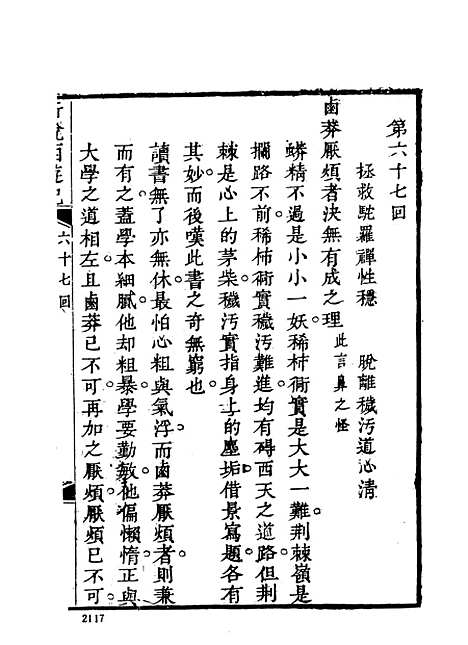 第六十七回
拯救駝羅禪性穩　脫離穢污道心清
鹵莽厭煩者決無有成之理 此言鼻之怪
蟒精不過是小小一妖稀柿衕實是大大一難荆棘嶺是
攔路不前稀柿衕實穢污難進均有碍西天之道路但荆
棘是心上的茅柴穢污實指身上的塵垢借景寫題各有
其妙而後嘆此書之奇無窮也
讀書無了亦無休最怕心粗與氣浮而鹵莽厭煩者則兼
而有之蓋學本細膩他却粗暴學要勤敏他偏懶惰正與
大學之道相左且鹵莽已不可再加之厭煩厭煩已不可
西遊記
六十七回
2117